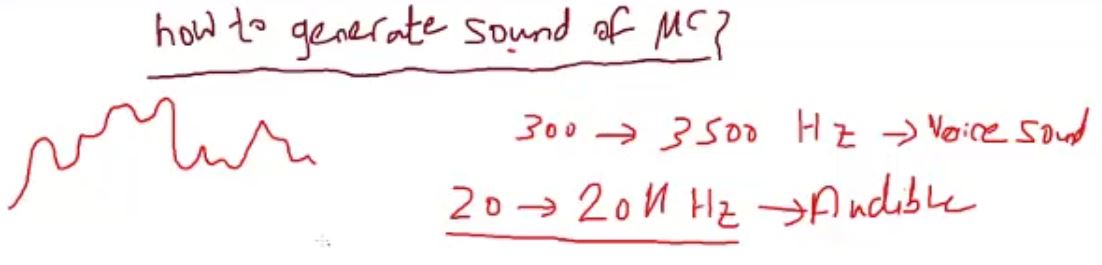 how to generate sound of MC?
300 → 3500 Hz → Voice sound
20 → 20K Hz → Audible